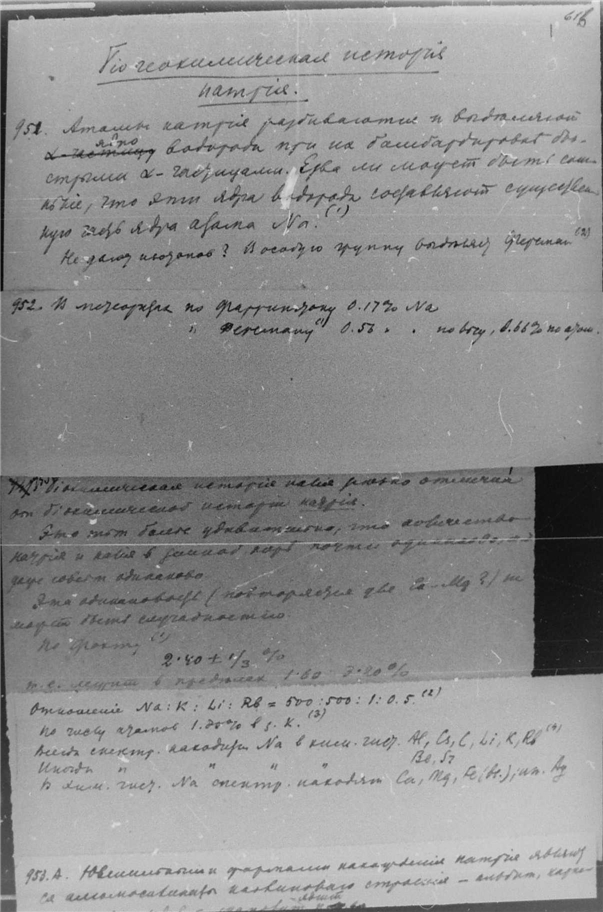 616
Біогеохимическая исторія
натрія.
951. Атомы натрія разбиваются и выделяют
ядро водорода при их бомбардировкѣ бы-
стрыми α-частицами. Едва ли может быть сом-
нѣніе, что эти ядра водорода составляют существен-
ную часть ядра атома Na.(1)
Не дает изотопов? В особую группу выдѣляет Ферсман (2)
952. В метеоритах по Фаррингтону 0.17% Na
" Ферсману(1) 0.56 " " по вѣсу, 0.66% по атом.
Біохимическая исторія калія рѣзко отличн
от біохимической исторіи натрія.
Это тѣм болѣе удивительно, что количество
натрія и калія в земной корѣ почти одинаково,
даже совсѣм одинаково
Эта одинаковость (повторяется для Ca-Mg?) не
может быть случайностью.
По Фохту(1)
2.40 + 1/3 %
т.е. лежит в предѣлах 1.60 - 3.20%
Отношеніе Na: K: Li: Rb = 500:500:1:0.5.(2)
По числу атомов 1.75% в з. к.(3)
Всегда спектр. находим Na в хим. чист. Al, Cs, C, Li, K, Rb(4)
Be, Sr
Иногда " " "
В хим. чист. Na спектр. находят Ca, Mg, Fe; Ag
953. А. Ювенильными формами нахожденія натрія являют
ся алюмосиликаты каолиноваго строенія - альбит,